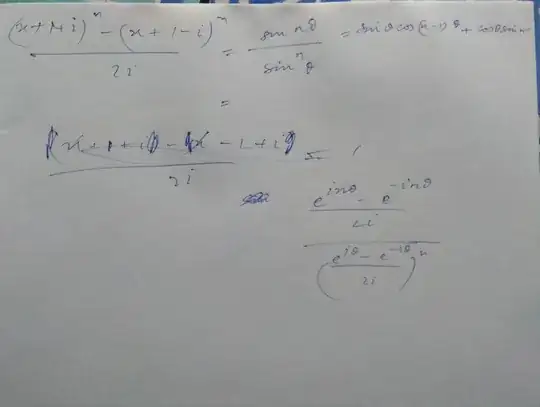 ((x+1+i)^n - (x+1-i)^n)/2i = sin nθ/sin^n θ = sin θ cos(n-1)θ + cosθ sin
=
(x+1+i) - (x-1+i)/2i = 1
((e^{inθ} - e^{-inθ})/2i)/((e^{iθ} - e^{-iθ})/2i)^n